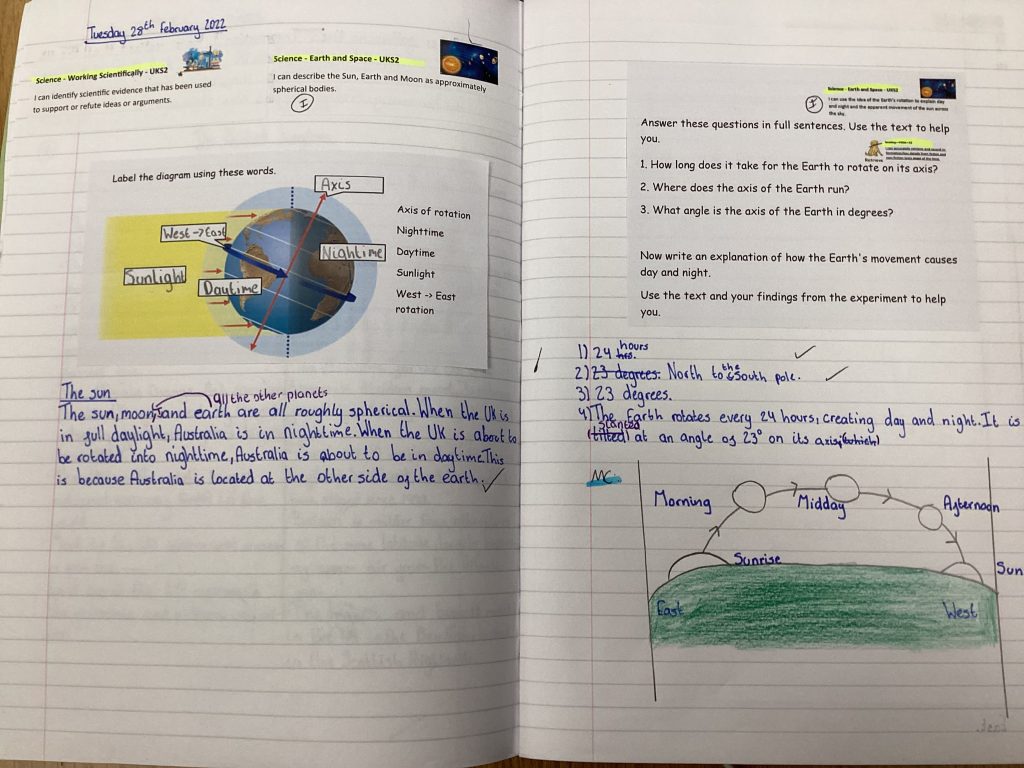 Tuesday 28th february 2022
Science - Working Scientifically - UKS2
I can identify scientific evidence that has been used
to support or refute ideas or arguments.
Science - Earth and Space - UKS2
I can describe the Sun, Earth and Moon as approximately
spherical bodies.
I
Label the diagram using these words.
Axis
West -> East
Nightime
Sunlight
Daytime
Axis of rotation
Nighttime
Daytime
Sunlight
West -> East
rotation
The sun
all the other planets
The sun, moon, and earth are all roughly spherical. When the UK is
in full daylight, Australia is in nighttime. When the UK is about to
be rotated into nighttime, Australia is about to be in daytime. This
is because Australia is located at the other side of the earth.
Science - Earth and Space - UKS2
I
I can use the idea of the Earth's rotation to explain day
and night and the apparent movement of the sun across
the sky.
Answer these questions in full sentences. Use the text to help
you.
Retrieve
1. How long does it take for the Earth to rotate on its axis?
2. Where does the axis of the Earth run?
3. What angle is the axis of the Earth in degrees?
Now write an explanation of how the Earth's movement causes
day and night.
Use the text and your findings from the experiment to help
you.
1) 24 hrs. hours
2) 23 degrees. North to the South pole.
3) 23 degrees.
4) The Earth rotates every 24 hours, creating day and night. It is
slanted
(tilted) at an angle of 23° on its axis (which)
MC
Morning
Midday
Afternoon
Sunrise
Sun
East
West